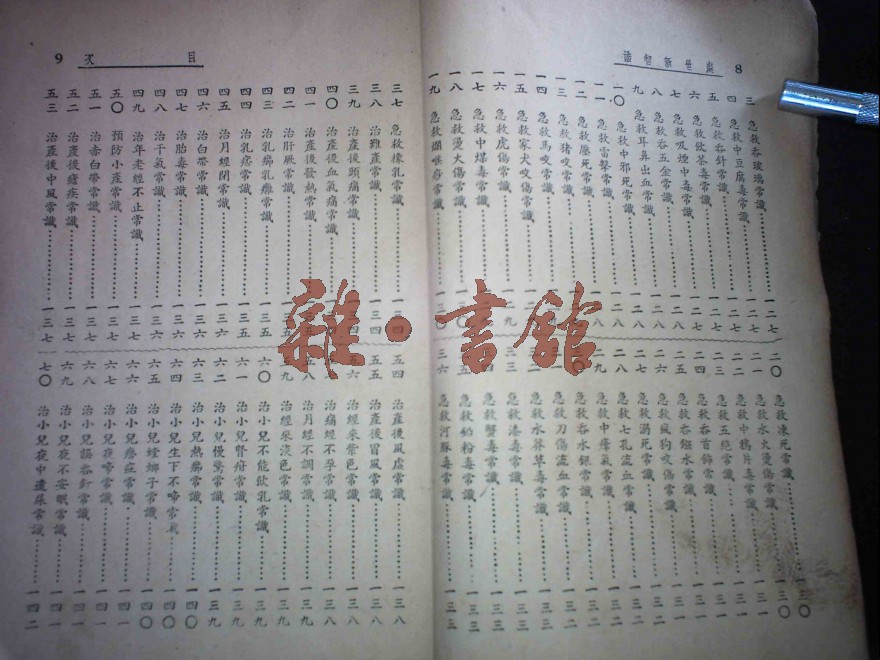 8
三 急救吞玻璃常識……一二七
四 急救中豆腐毒常識……一二七
五 急救吞針常識……一二七
六 急救飲茶毒常識……一二七
七 急救吸煙中毒常識……一二七
八 急救吞五金常識……一二八
九 急救耳鼻出血常識……一二八
一〇 急救中邪死常識……一二八
一一 急救雷擊常識……一二八
一二 急救魘死常識……一二八
一三 急救豬咬常識……
一四 急救馬咬常識……
一五 急救家犬咬傷常識……
一六 急救虎傷常識……一二九
一七 急救中煤毒常識……
一八 急救燙火傷常識……一三〇
一九 急救爛喉痧常識……一三〇
二〇 急救凍死常識……一三〇
二一 急救水火燙傷常識……一三〇
二二 急救中鴉片毒常識……一三一
二三 急救五絕常識……一三一
二四 急救吞首飾常識……一三一
二五 急救吞鏹水常識……一三一
二六 急救瘋狗咬傷常識……一三一
二七 急救溺死常識……一三一
二八 急救七孔流血常識……一三二
二九 急救中瘴氣常識……一三二
三〇 急救吞水銀常識……一三二
急救刀傷流血常識……一三二
急救水莽草毒常識……一三二
三三 急救毒常識……一三三
急救蟹毒常識……一三三
急救鉛粉毒常識……一三三
三六 急救河豚毒常識……一三三
目次 9
三七 急救橡乳常識……一三四
三八 治難產常識……一三四
三九 治產後頭痛常識……
四〇 治產後血氣痛常識……
四一 治產後發熱常識……
四二 治肝厥常識……一三五
四三 治乳癰乳癤常識……一三五
四四 治乳瘡常識……一三五
四五 治月經閉常識……一三六
四六 治白帶常識……一三六
四七 治胎毒常識……一三六
四八 治干氣常識……一三六
四九 治年老經不止常識……一三六
五〇 預防小產常識……一三七
五一 治赤白帶常識……一三七
五二 治產後瘧疾常識……一三七
五三 治產後中風常識……一三七
五四 治產後風虛常識……一三八
五五 治產後冒風常識……一三八
五六 治經來紫色常識……一三八
治痛經不孕常識……一三八
五八 治月經不調常識……一三九
五九 治經來淡色常識……一三九
六〇 治小兒不能飲乳常識……一三九
六一 治小兒腎疳常識……一三九
六二 治小兒慢驚常識……一三九
六三 治小兒熱病常識……一四〇
六四 治小兒生下不啼常識……一四〇
六五 治小兒螳螂子常識……一四〇
六六 治小兒痧痘常識……一四一
六七 治小兒夜啼常識……一四一
六八 治小兒誤吞針常識……一四一
六九 治小兒夜不安眠常識……一四一
七〇 治小兒夜中遺尿常識……一四二
雜·書館